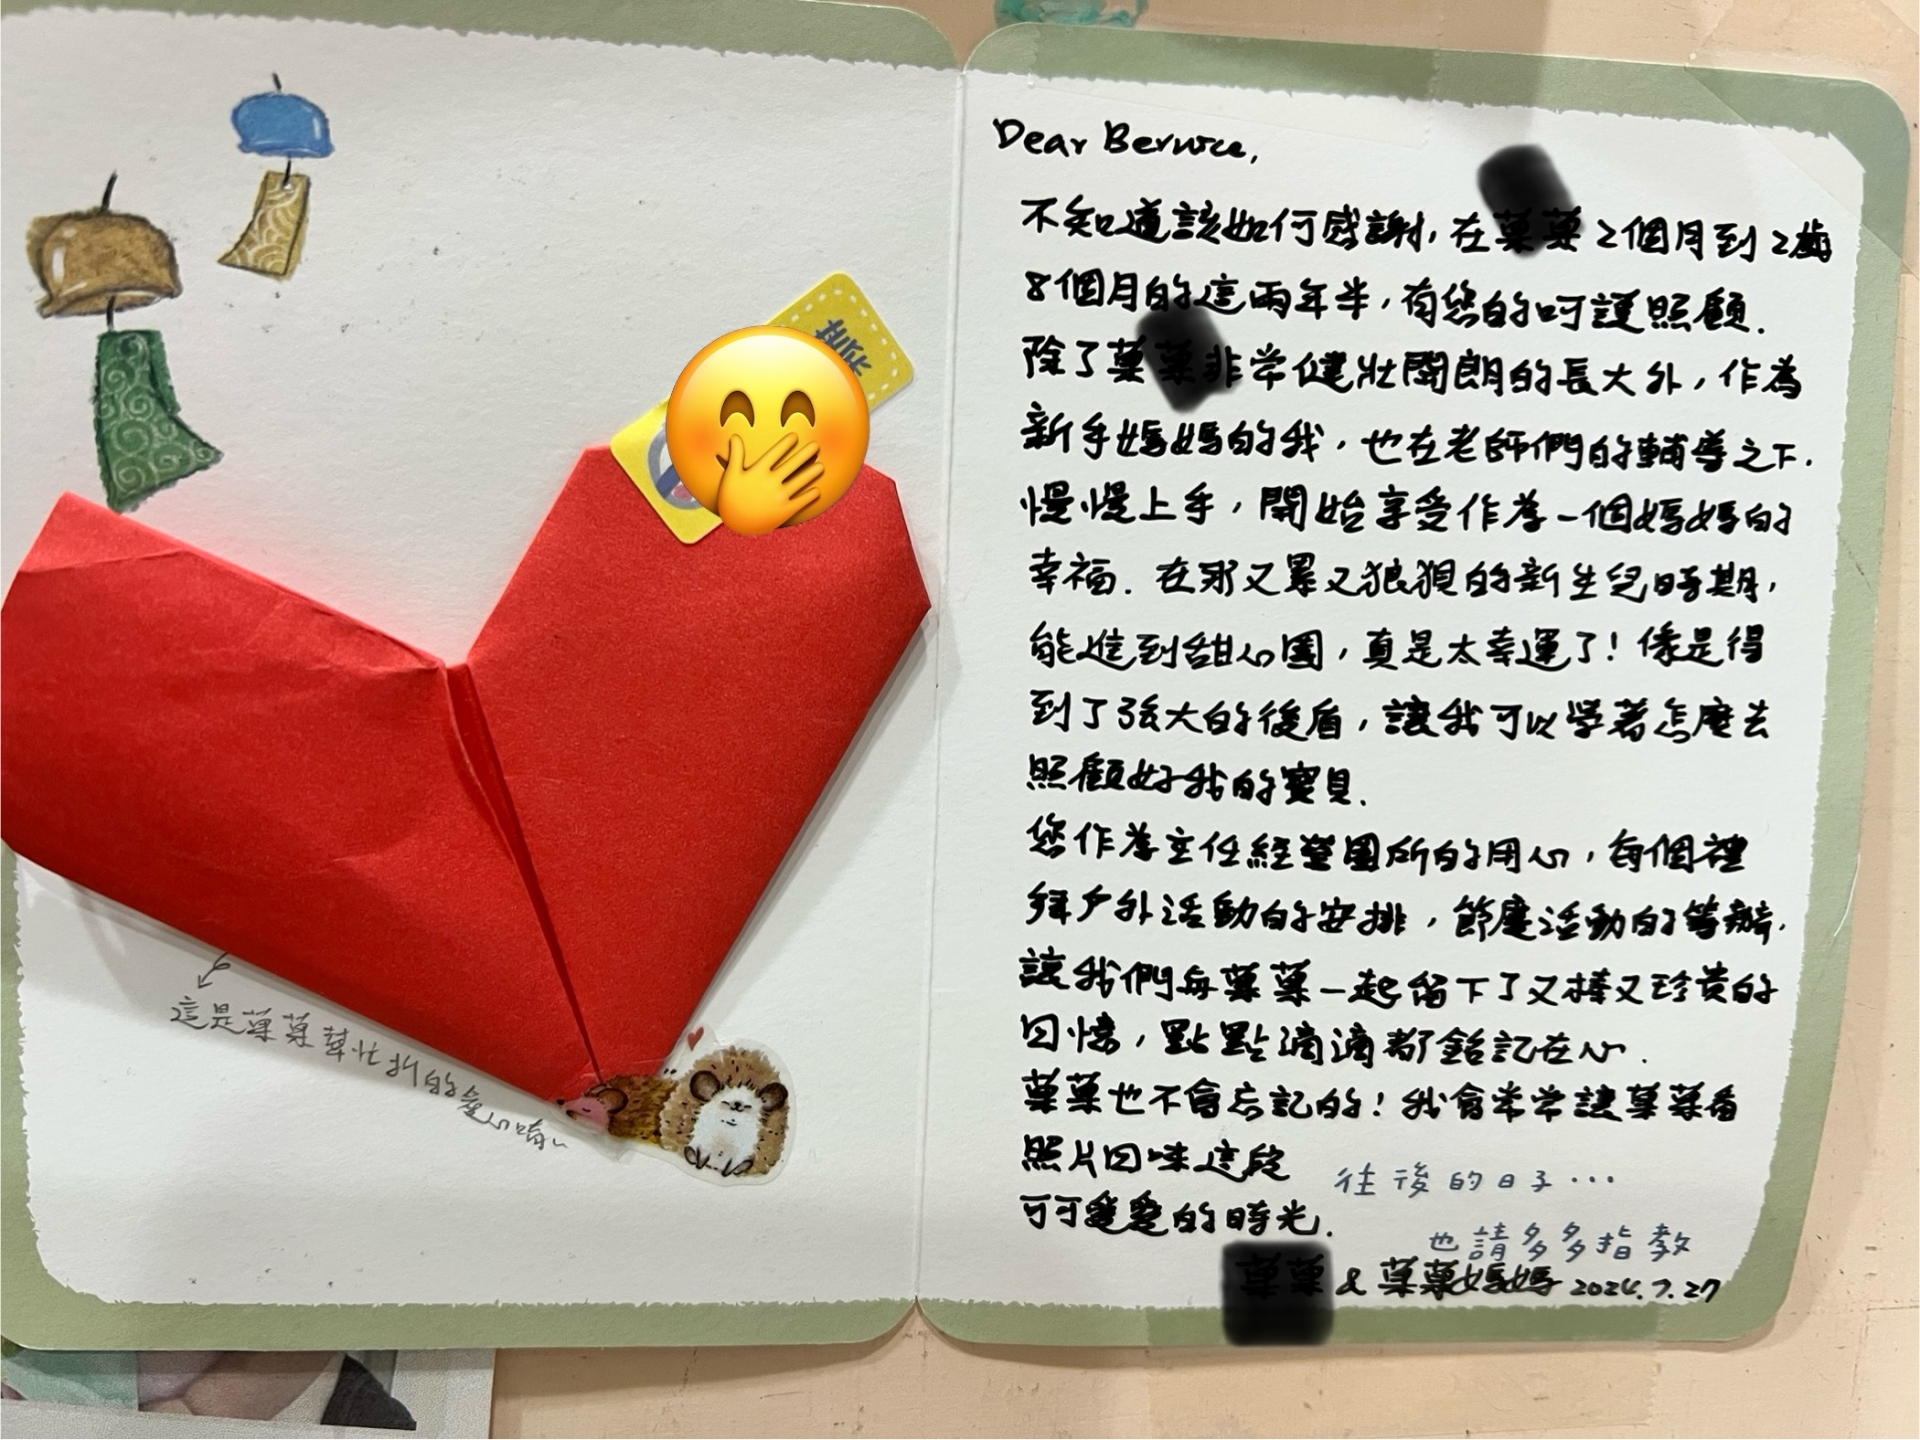 Dear Bernice,
不知道該如何感謝，在葉葉2個月到2歲
8個月的這兩年半，有您的呵護照顧．
除了葉葉非常健壯開朗的長大外，作為
新手媽媽的我，也在老師們的輔導之下．
慢慢上手，開始享受作為一個媽媽的
幸福．在那又累又狼狽的新生兒時期，
能進到甜心園，真是太幸運了！像是得
到了強大的後盾，讓我可以學著怎麼去
照顧好我的寶貝．
您作為主任經營園所的用心，每個禮
拜戶外活動的安排，節慶活動的籌辦．
讓我們與葉葉一起留下了又棒又珍貴的
回憶，點點滴滴都銘記在心．
葉葉也不會忘記的！我會常常讓葉葉看
照片回味這段
可可愛愛的時光．
往後的日子…
也請多多指教
葉葉 & 葉葉媽媽 2024.7.27
這是葉葉幫忙折的愛心唷～